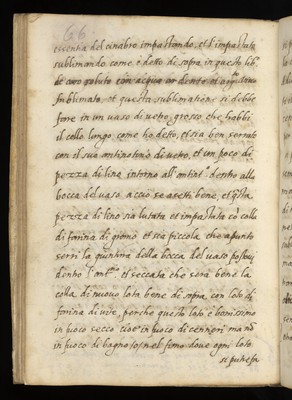 66
essentia del cinabro impastando, et l'impastato
sublimando come è detto di sopra in questo lib.
di soro soluto con acqua ardente et
sublimato, et questa sublimatione si debbe
fare in un vaso di vetro grosso che habbi
il collo lungo come ho detto, et sia ben serrato
con il suo antinotorio di vetro, et un poco di
pezza di lino intorno all' dentro alla
bocca del vaso acciò se asetti bene, et
pezza di lino sia lutata et impastata cō colla
di farina di grano et sia piccola che apunto
serri la della bocca del vaso
dentro et seccata che sera bene la
colla di nuovo lota bene di sopra con loto di
farina di perche questo loto è bonissimo
in fuoco secco cioe in fuoco di cenneri ma nō
in fuoco di bagno nel fimo dove ogni loto
si